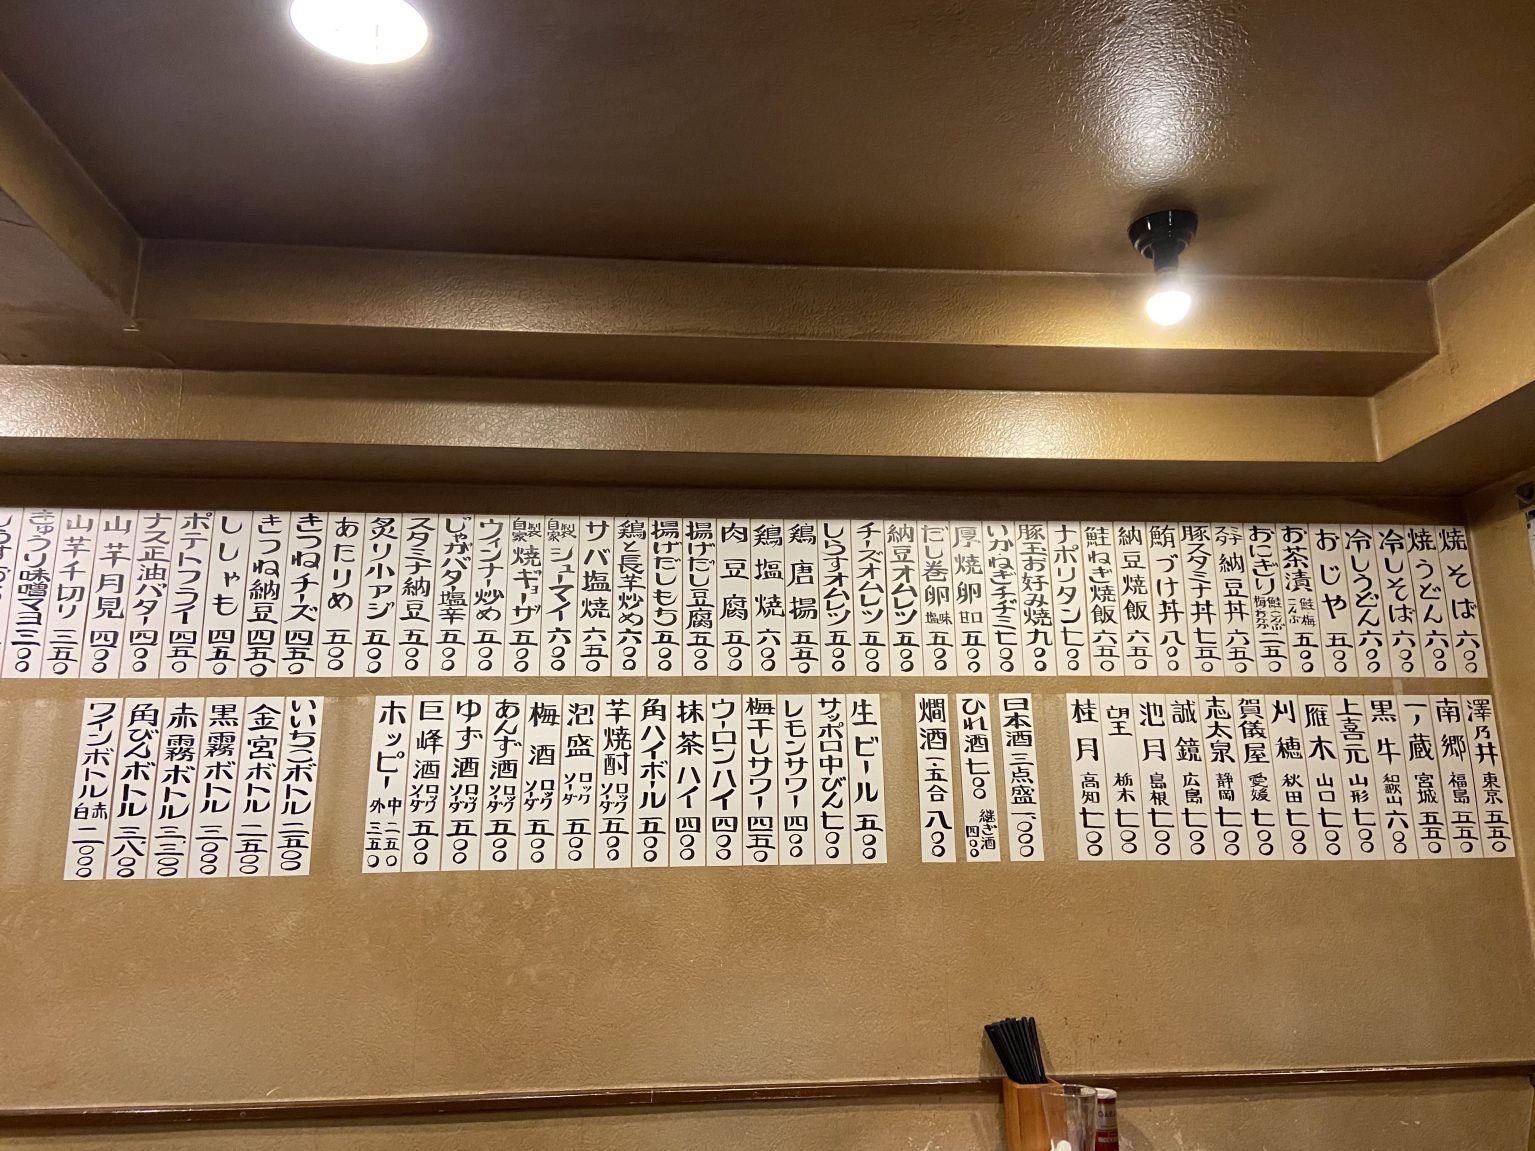 焼そば 六〇〇
焼うどん 六〇〇
冷しそば 六〇〇
冷しうどん 六〇〇
おじや 五〇〇
お茶漬 鮭 梅 こんぶ 五〇〇
おにぎり 鮭 こんぶ 梅 おかか 二五〇
スタミナ 納豆丼 六五〇
豚スタミナ丼 七五〇
鮪づけ丼 八〇〇
納豆焼飯 六五〇
鮭ねぎ焼飯 六五〇
ナポリタン 七〇〇
豚玉お好み焼 九〇〇
いかねぎチヂミ 七〇〇
厚焼卵 甘口 六〇〇
だし巻卵 塩味 五五〇
納豆オムレツ 五〇〇
チーズオムレツ 五〇〇
しらすオムレツ 五五〇
鶏唐揚 五五〇
鶏塩焼 六〇〇
肉豆腐 五〇〇
揚げだし豆腐 五〇〇
揚げだしもち 五〇〇
鶏と長芋炒め 六〇〇
サバ塩焼 六五〇
自家製 シューマイ 六〇〇
自家製 焼ギョーザ 五五〇
ウィンナー炒め 五〇〇
じゃがバタ塩辛 五五〇
スタミナ納豆 五〇〇
炙り小アジ 五〇〇
あたりめ 五〇〇
きつねチーズ 四五〇
きつね納豆 四五〇
ししゃも 四五〇
ポテトフライ 四五〇
ナス正油バター 四〇〇
山芋月見 四〇〇
山芋千切り 三五〇
きゅうり味噌マヨ 三〇〇
澤乃井 東京 五五〇
南郷 福島 五五〇
一ノ蔵 宮城 五五〇
黒牛 和歌山 六〇〇
上喜元 山形 七〇〇
雁木 山口 七〇〇
刈穂 秋田 七〇〇
賀儀屋 愛媛 七〇〇
志太泉 静岡 七〇〇
誠鏡 広島 七〇〇
池月 島根 七〇〇
望王 栃木 七〇〇
桂月 高知 七〇〇
日本酒 三点盛 一、〇〇〇
ひれ酒 七〇〇 継ぎ酒 四〇〇
燗酒 一・五合 八〇〇
生ビール 五〇〇
サッポロ中びん 七〇〇
レモンサワー 四〇〇
梅干しサワー 四五〇
ウーロンハイ 四〇〇
抹茶ハイ 四〇〇
角ハイボール 五〇〇
芋焼酎 ロック ソーダ 五〇〇
泡盛 ロック ソーダ 五〇〇
梅酒 ロック ソーダ 五〇〇
あんず酒 ロック ソーダ 五〇〇
ゆず酒 ロック ソーダ 五〇〇
巨峰酒 ロック ソーダ 五〇〇
ホッピー 中 二五〇 外 三五〇
いいちこボトル 二、五〇〇
金宮ボトル 二、五〇〇
黒霧ボトル 三、〇〇〇
赤霧ボトル 三、三〇〇
角びんボトル 三、八〇〇
ワインボトル 赤 白 二、〇〇〇